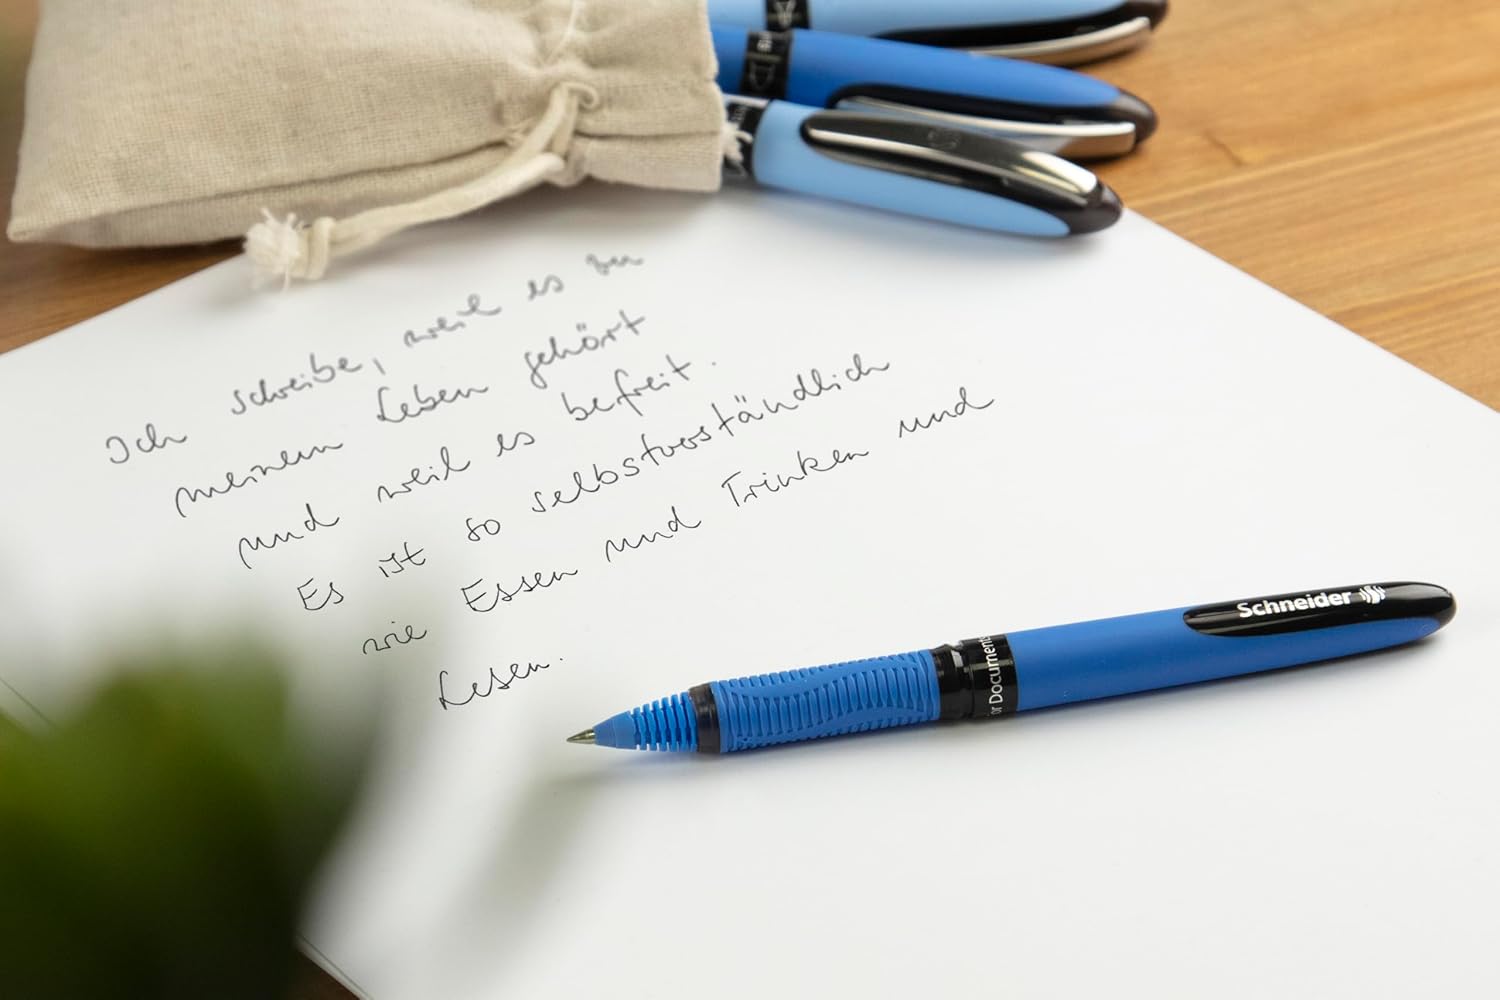 Ich schreibe, weil es zu
meinem Leben gehört
und weil es befreit.
Es ist so selbstverständlich
wie Essen und Trinken und
Lesen.
Schneider
or Documents